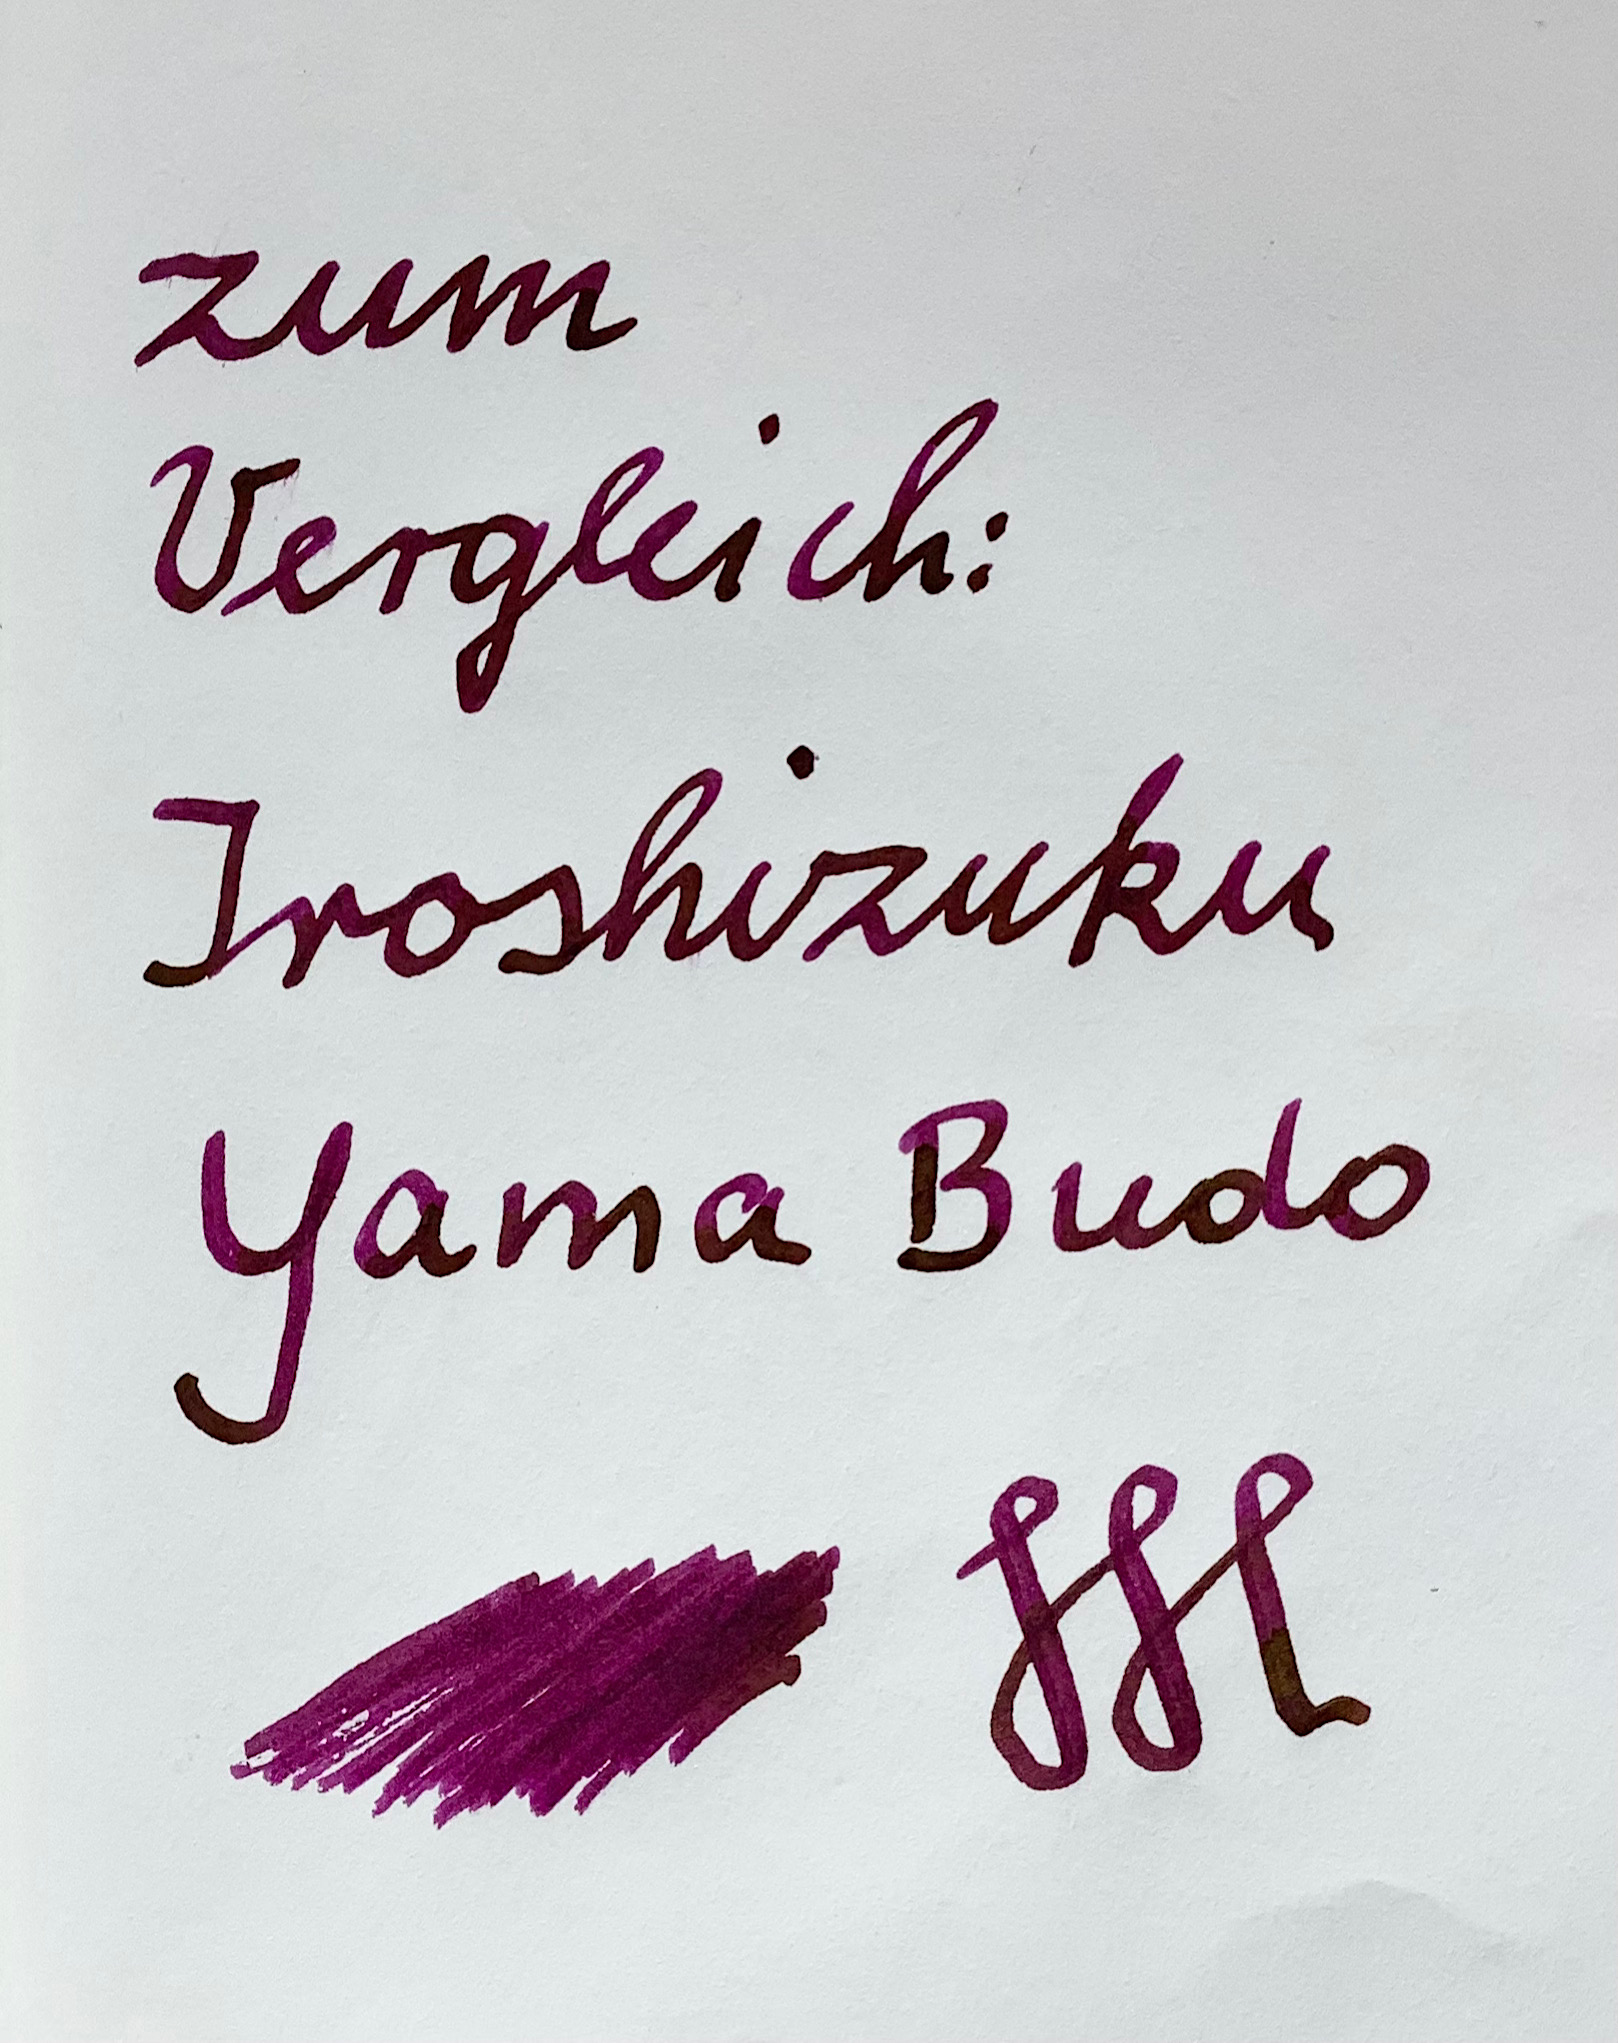 zum
Vergleich:
Iroshizuku
Yama Budo